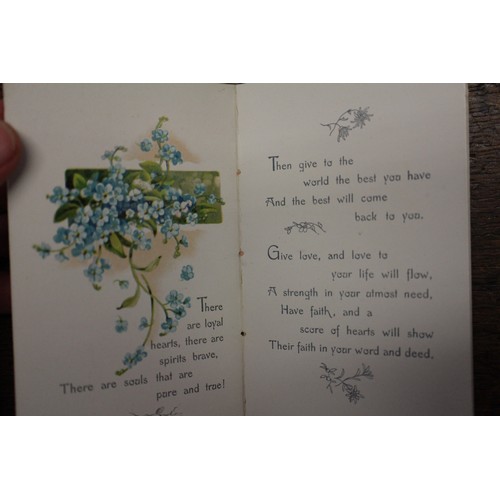 There
are loyal
hearts, there are
spirits brave,
There are souls that are
pure and true!
Then give to the
world the best you have
And the best will come
back to you.
Give love, and love to
your life will flow,
A strength in your utmost need,
Have faith, and a
score of hearts will show
Their faith in your word and deed.